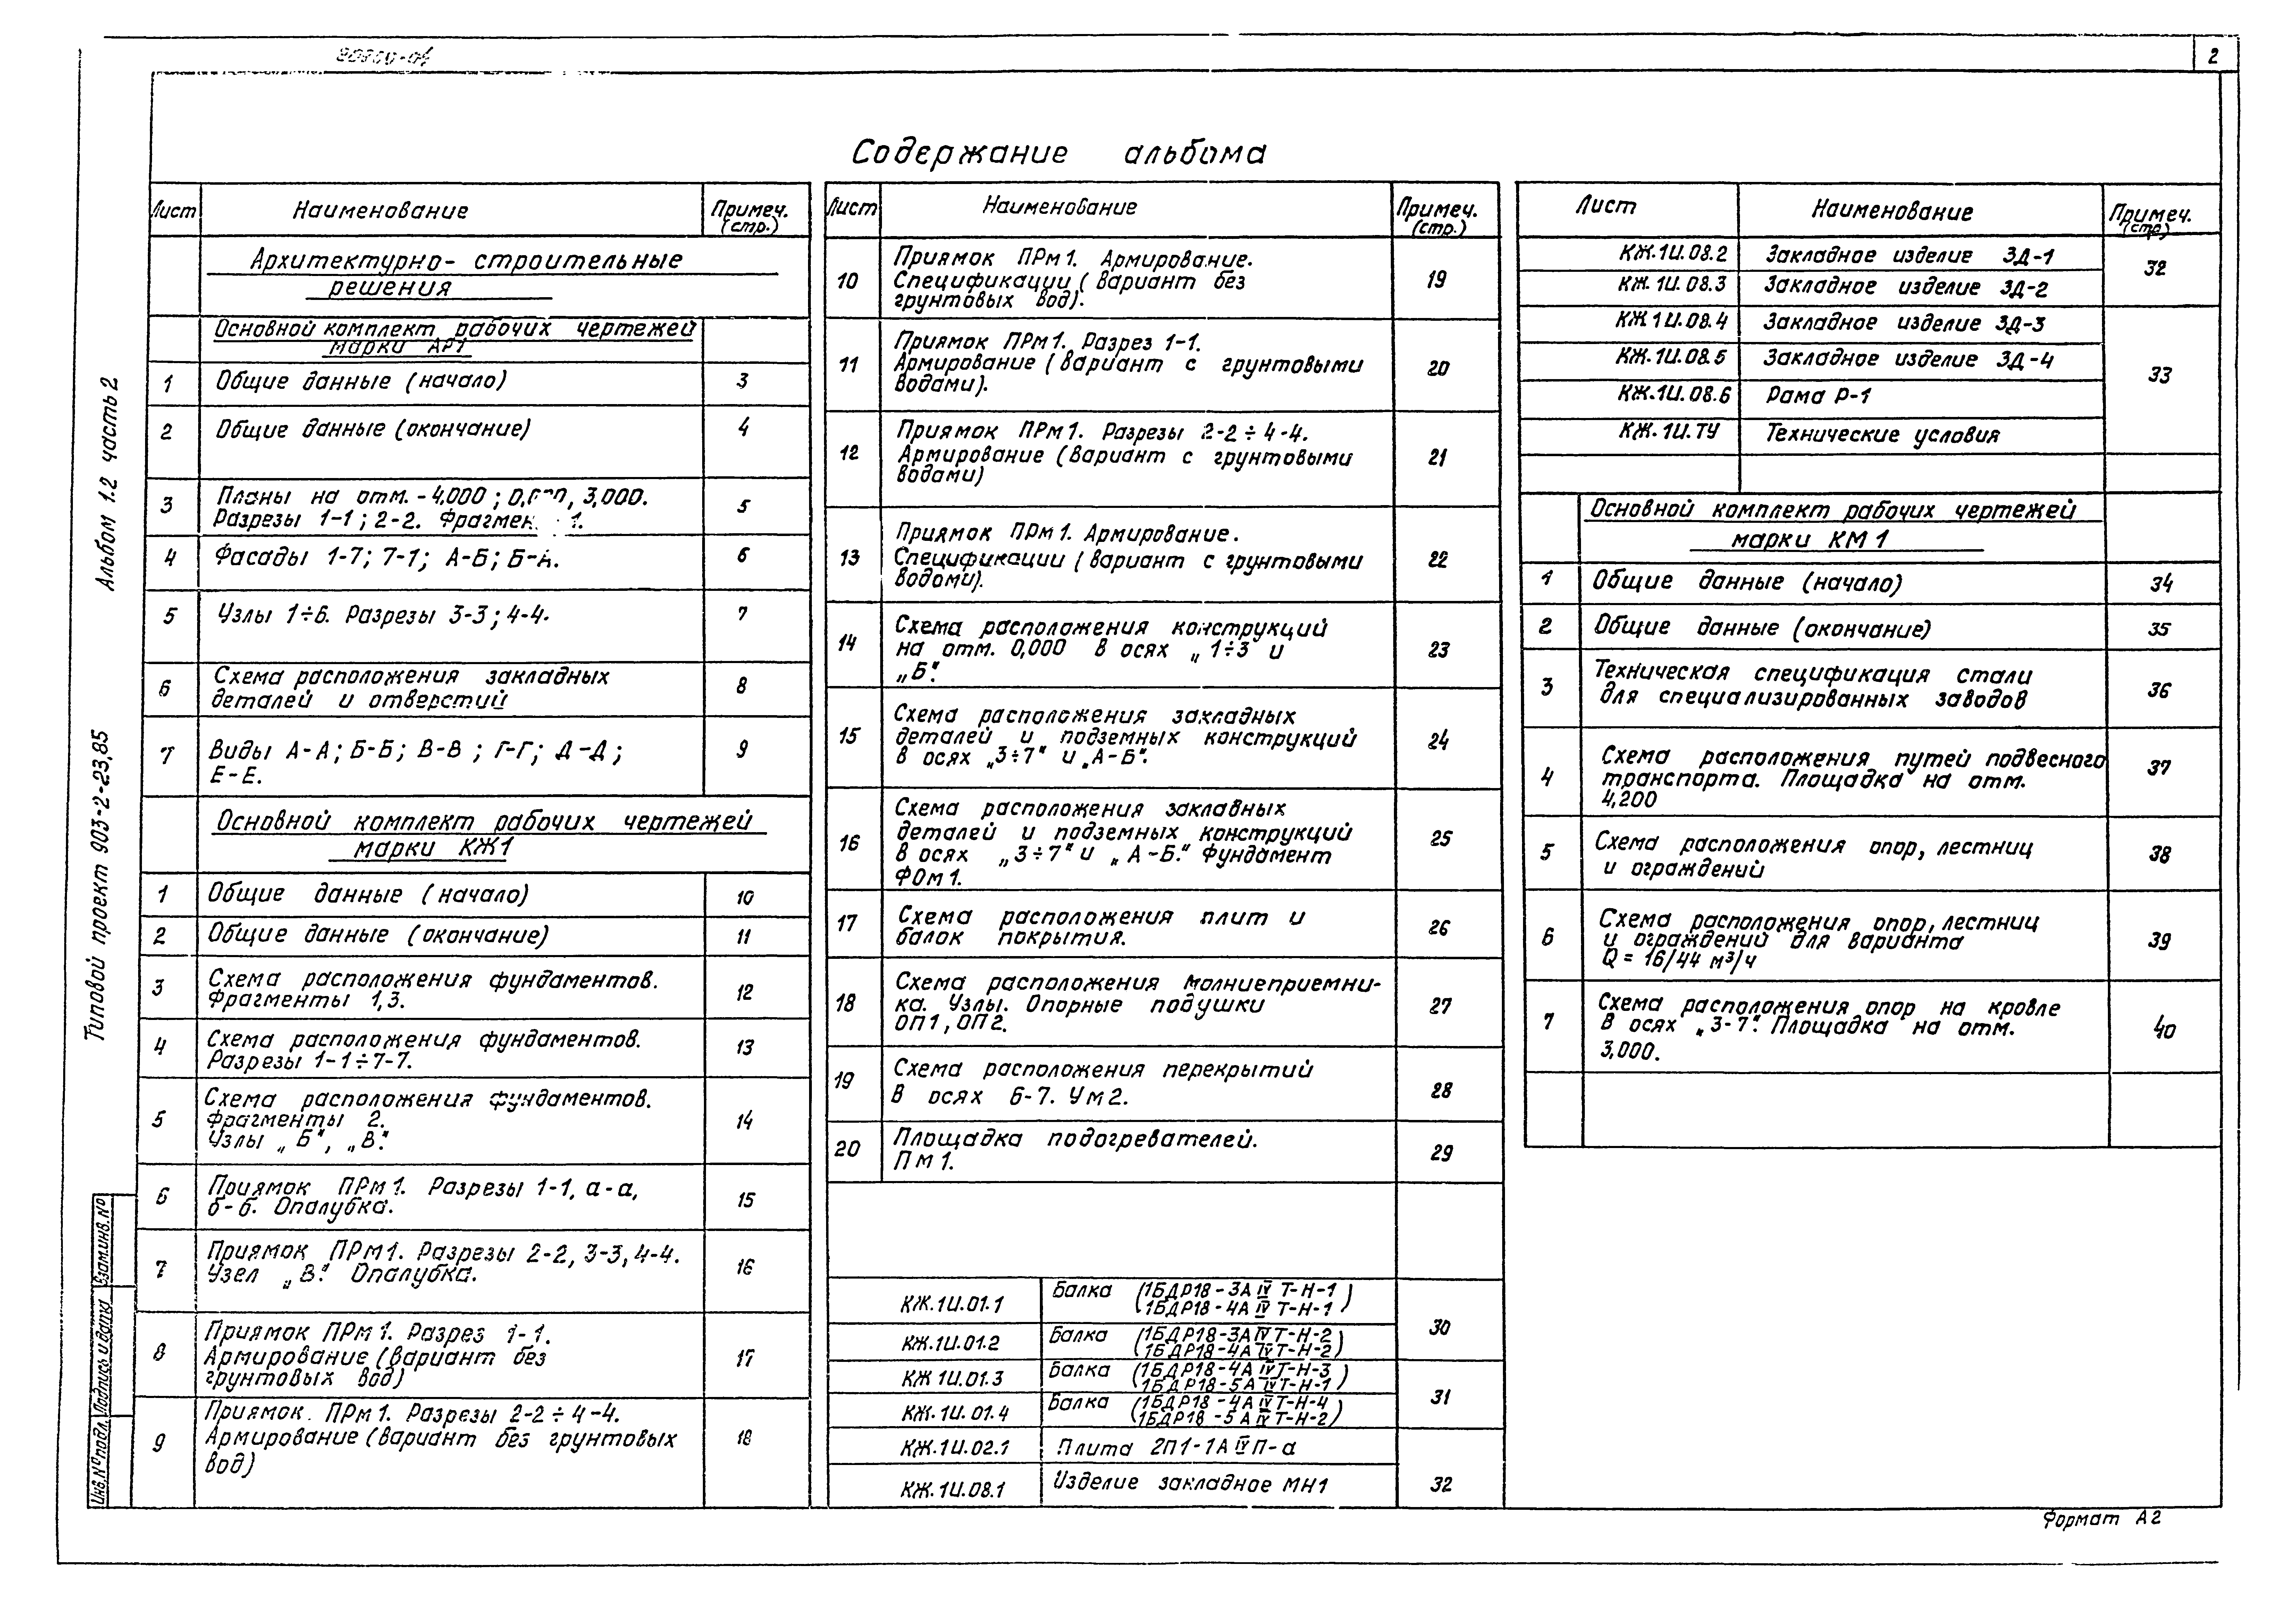 2
Содержание альбома
Альбом 1.2 часть 2
Типовой проект 903-2-23.85
Взам.инв.№
Подпись и дата
Инв.№подл.
Лист Наименование Примеч.
(стр.)
Архитектурно-строительные
решения
Основной комплект рабочих чертежей
марки АР1
1 Общие данные (начало) 3
2 Общие данные (окончание) 4
3 Планы на отм. -4,000; 3,000. 5
Разрезы 1-1; 2-2. 1.
4 Фасады 1-7; 7-1; А-Б; Б-А. 6
5 Узлы 1÷6. Разрезы 3-3; 4-4. 7
6 Схема расположения закладных 8
деталей и отверстий
7 Виды А-А; Б-Б; В-В; Г-Г; Д-Д; 9
Е-Е.
Основной комплект рабочих чертежей
марки КЖ1
1 Общие данные (начало) 10
2 Общие данные (окончание) 11
3 Схема расположения фундаментов. 12
Фрагменты 1,3.
4 Схема расположения фундаментов. 13
Разрезы 1-1÷7-7.
5 Схема расположения фундаментов. 14
Фрагменты 2.
Узлы „Б", „В".
6 Приямок ПРм1. Разрезы 1-1, а-а, 15
б-б. Опалубка.
7 Приямок ПРм1. Разрезы 2-2, 3-3, 4-4. 16
Узел „В". Опалубка.
8 Приямок ПРм1. Разрез 1-1. 17
Армирование (вариант без
грунтовых вод)
9 Приямок. ПРм1. Разрезы 2-2÷4-4. 18
Армирование (вариант без грунтовых
вод)
Лист Наименование Примеч.
(стр.)
10 Приямок ПРм1. Армирование. 19
Спецификации (вариант без
грунтовых вод).
11 Приямок ПРм1. Разрез 1-1. 20
Армирование (вариант с грунтовыми
водами).
12 Приямок ПРм1. Разрезы 2-2÷4-4. 21
Армирование (вариант с грунтовыми
водами)
13 Приямок ПРм1. Армирование. 22
Спецификации (вариант с грунтовыми
водоми).
14 Схема расположения конструкций 23
на отм. 0,000 в осях „1÷3 и
„Б".
15 Схема расположения закладных 24
деталей и подземных конструкций
в осях „3÷7" и „А-Б".
16 Схема расположения закладных 25
деталей и подземных конструкций
в осях „3÷7" и „А-Б." Фундамент
ФОм1.
17 Схема расположения плит и 26
балок покрытия.
18 Схема расположения молниеприемни- 27
ка. Узлы. Опорные подушки
ОП1, ОП2.
19 Схема расположения перекрытий 28
в осях 6-7. Ум2.
20 Площадка подогревателей. 29
Пм1.
КЖ.1И.01.1 Балка (1БДР18-3АIVТ-Н-1 30
1БДР18-4АIVТ-Н-1)
КЖ.1И.01.2 Балка (1БДР18-3АIVТ-Н-2
1БДР18-4АIVТ-Н-2)
КЖ 1И.01.3 Балка (1БДР18-4АIVТ-Н-3 31
1БДР18-5АIVТ-Н-1)
КЖ.1И.01.4 Балка (1БДР18-4АIVТ-Н-4
1БДР18-5АIVТ-Н-2)
КЖ.1И.02.1 Плита 2П1-1АIVП-а 32
КЖ.1И.08.1 Изделие закладное МН1
Лист Наименование Примеч.
(стр)
КЖ.1И.08.2 Закладное изделие ЗД-1 32
КЖ.1И.08.3 Закладное изделие ЗД-2
КЖ 1И.08.4 Закладное изделие ЗД-3 33
КЖ.1И.08.5 Закладное изделие ЗД-4
КЖ.1И.08.6 Рама Р-1
КЖ.1И.ТУ Технические условия
Основной комплект рабочих чертежей
марки КМ1
1 Общие данные (начало) 34
2 Общие данные (окончание) 35
3 Техническая спецификация стали 36
для специализированных заводов
4 Схема расположения путей подвесного 37
транспорта. Площадка на отм.
4,200
5 Схема расположения опор, лестниц 38
и ограждений
6 Схема расположения опор, лестниц 39
и ограждений для варианта
Q = 16/44 м³/ч
7 Схема расположения опор на кровле 40
в осях „3-7". Площадка на отм.
3,000.
Формат А2